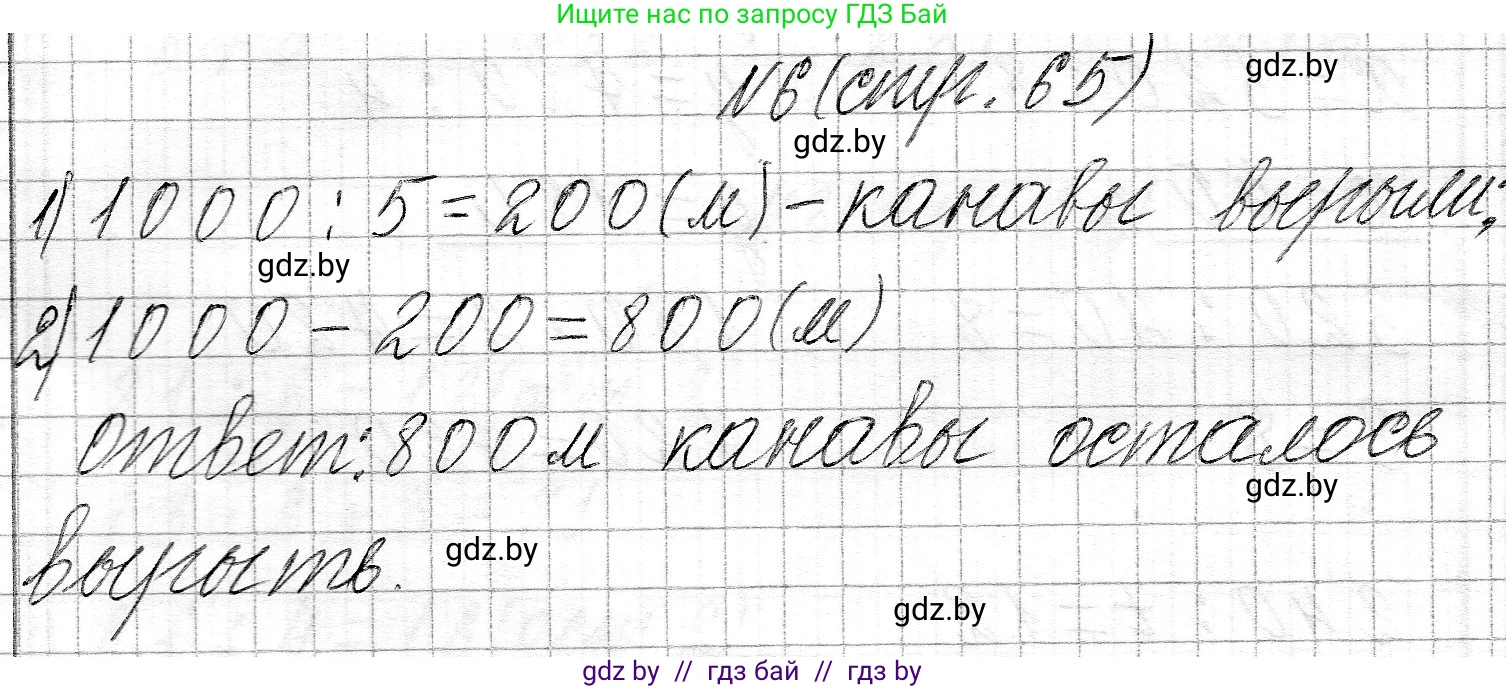 Ищите нас по запросу ГДЗ Бай
№6 (стр. 65)
gdz.by
gdz.by
1) 1000 : 5 = 200 (м) - канавы вырыли;
gdz.by
2) 1000 - 200 = 800 (м)
Ответ: 800 м канавы осталось
gdz.by
вырыть.
gdz.by
gdz.by
gdz by // гдз бай // гдз by